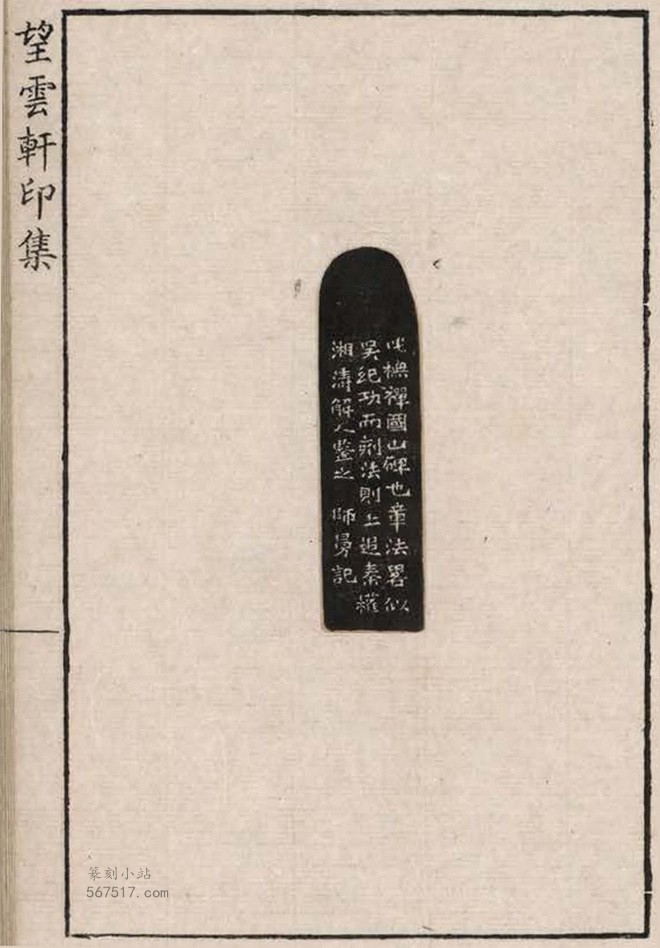 望雲軒印集
此橅禪國山碑也章法畧似
吴紀功而刻法則上追秦權
湘濤解人鑒之 師曼記
篆刻小站
567517.com